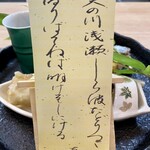 天の川浅瀬しら波たどりつつ
渡りはてねば明けぞしにける